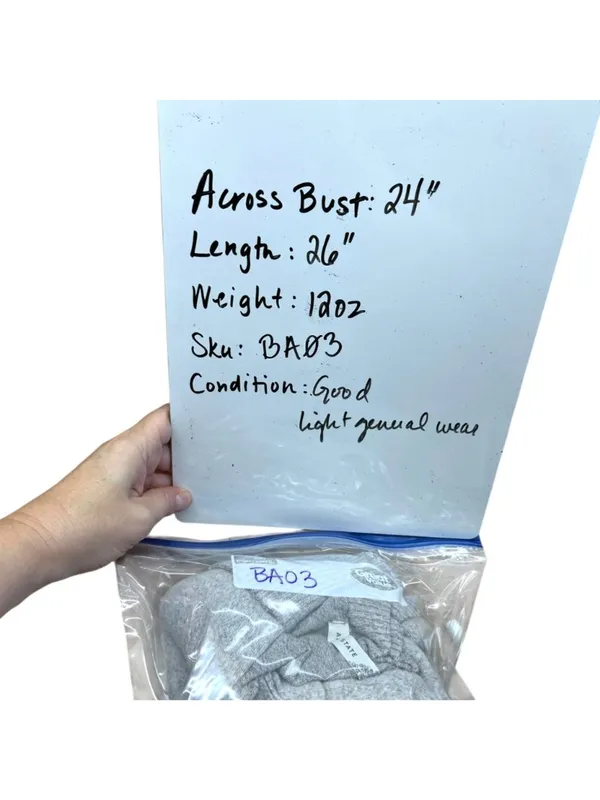 Across Bust: 24"
Length: 26"
Weight: 12oz
Sku: BA03
Condition: Good
light general wear
BA03
STATE